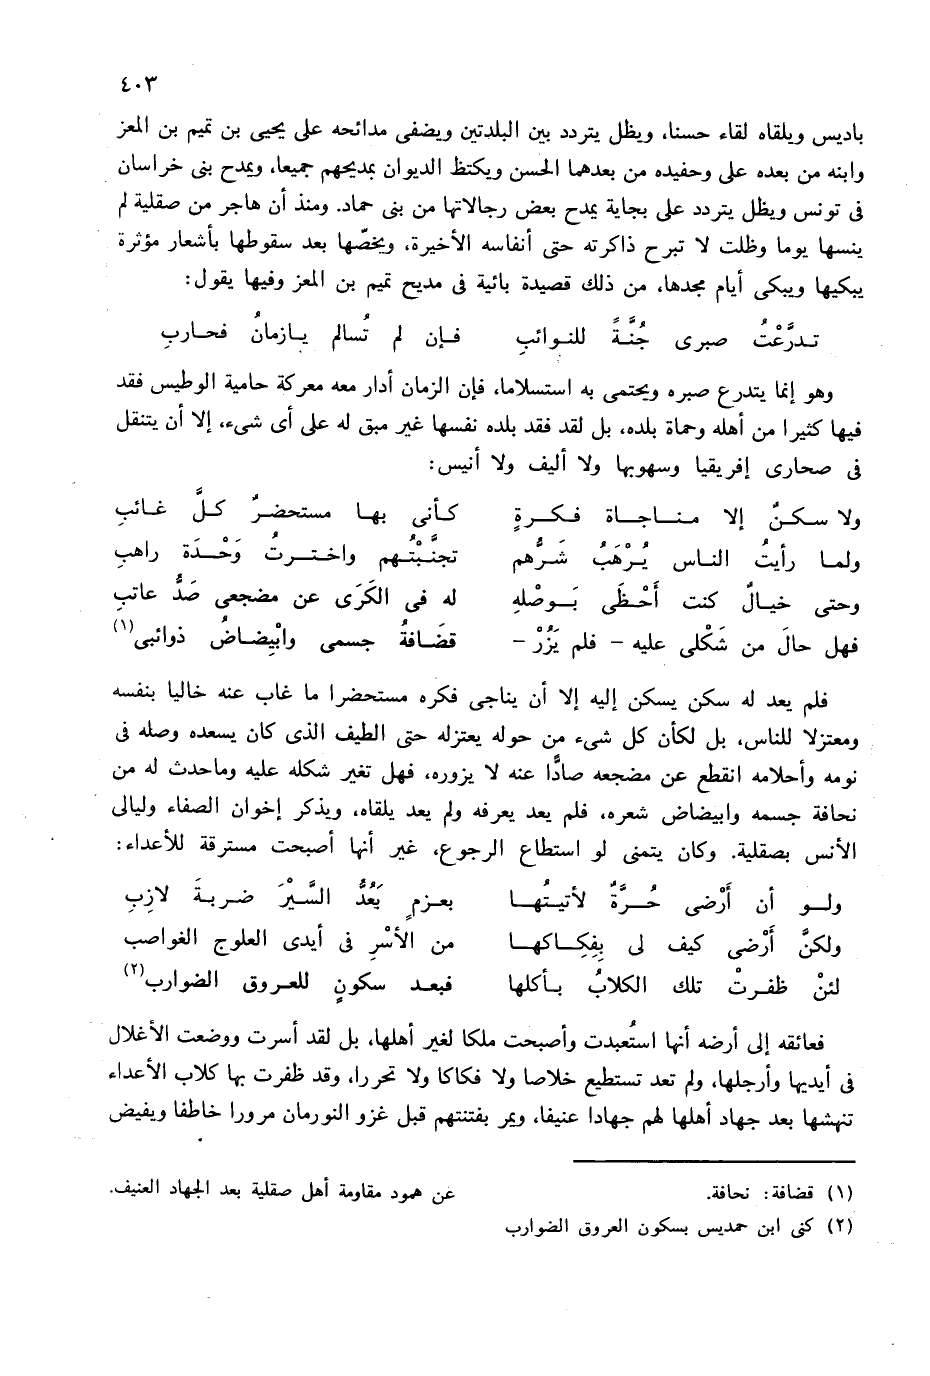 ٤٠٣
باديس ويلقاه لقاء حسنا، ويظل يتردد بين البلدتين ويضفى مدائحه على يحيى بن تميم بن المعز
وابنه من بعده على وحفيده من بعدهما الحسن ويكتظ الديوان بمديحهم جميعا، ويمدح بنى خراسان
فى تونس ويظل يتردد على بجاية يمدح بعض رجالاتها من بنى حماد. ومنذ أن هاجر من صقلية لم
ينسها يوما وظلت لا تبرح ذاكرته حتى أنفاسه الأخيرة، ويخصّها بعد سقوطها بأشعار مؤثرة
يبكيها ويبكى أيام مجدها، من ذلك قصيدة بائية فى مديح تميم بن المعز وفيها يقول:
تدرَّعْتُ صبرى جُنَّةً للنوائبِ فإن لم تُسالم يازمانُ فحارب
وهو إنما يتدرع صبره ويحتمى به استسلاما، فإن الزمان أدار معه معركة حامية الوطيس فقد
فيها كثيرا من أهله وحماة بلده، بل لقد فقد بلده نفسها غير مبق له على أى شىء، إلا أن يتنقل
فى صحارى إفريقيا وسهوبها ولا أليف ولا أنيس:
ولا سكنٌ إلا مناجاة فكرةٍ كأنى بها مستحضرٌ كلَّ غائبِ
ولما رأيتُ الناس يُرْهَبُ شرُّهم تجنَّبْتُهم واخترتُ وَحْدَة راهبِ
وحتى خيالٌ كنت أَحْظَى بوصْلهِ له فى الكَرَى عن مضجعى صَدُّ عاتبِ
فهل حالَ من شَكْلى عليه – فلم يَزُرْ – قضَافةُ جسمى وابْيِضاضُ ذوائبى(١)
فلم يعد له سكن يسكن إليه إلا أن يناجى فكره مستحضرا ما غاب عنه خاليا بنفسه
ومعتزلا للناس، بل لكأن كل شىء من حوله يعتزله حتى الطيف الذى كان يسعده وصله فى
نومه وأحلامه انقطع عن مضجعه صادًّا عنه لا يزوره، فهل تغير شكله عليه وماحدث له من
نحافة جسمه وابيضاض شعره، فلم يعد يعرفه ولم يعد يلقاه، ويذكر إخوان الصفاء وليالى
الأنس بصقلية. وكان يتمنى لو استطاع الرجوع، غير أنها أصبحت مسترقة للأعداء:
ولو أن أَرْضى حُرَّةٌ لأتيتُها بعزمٍ يَعُدُّ السَّيْرَ ضربةَ لازِبِ
ولكنَّ أَرْضى كيف لى بِفِكاكها من الأسْرِ فى أيدى العلوج الغواصب
لئنْ ظفرتْ تلك الكلابُ بأكلها فبعد سكونٍ للعروق الضوارب(٢)
فعائقه إلى أرضه أنها استُعبدت وأصبحت ملكا لغير أهلها، بل لقد أسرت ووضعت الأغلال
فى أيديها وأرجلها، ولم تعد تستطيع خلاصا ولا فكاكا ولا تحررا، وقد ظفرت بها كلاب الأعداء
تنهشها بعد جهاد أهلها لهم جهادا عنيفا، ويمر بفتنتهم قبل غزو النورمان مرورا خاطفا ويفيض
(١) قضافة: نحافة.
(٢) كنى ابن حمديس بسكون العروق الضوارب
عن همود مقاومة أهل صقلية بعد الجهاد العنيف.